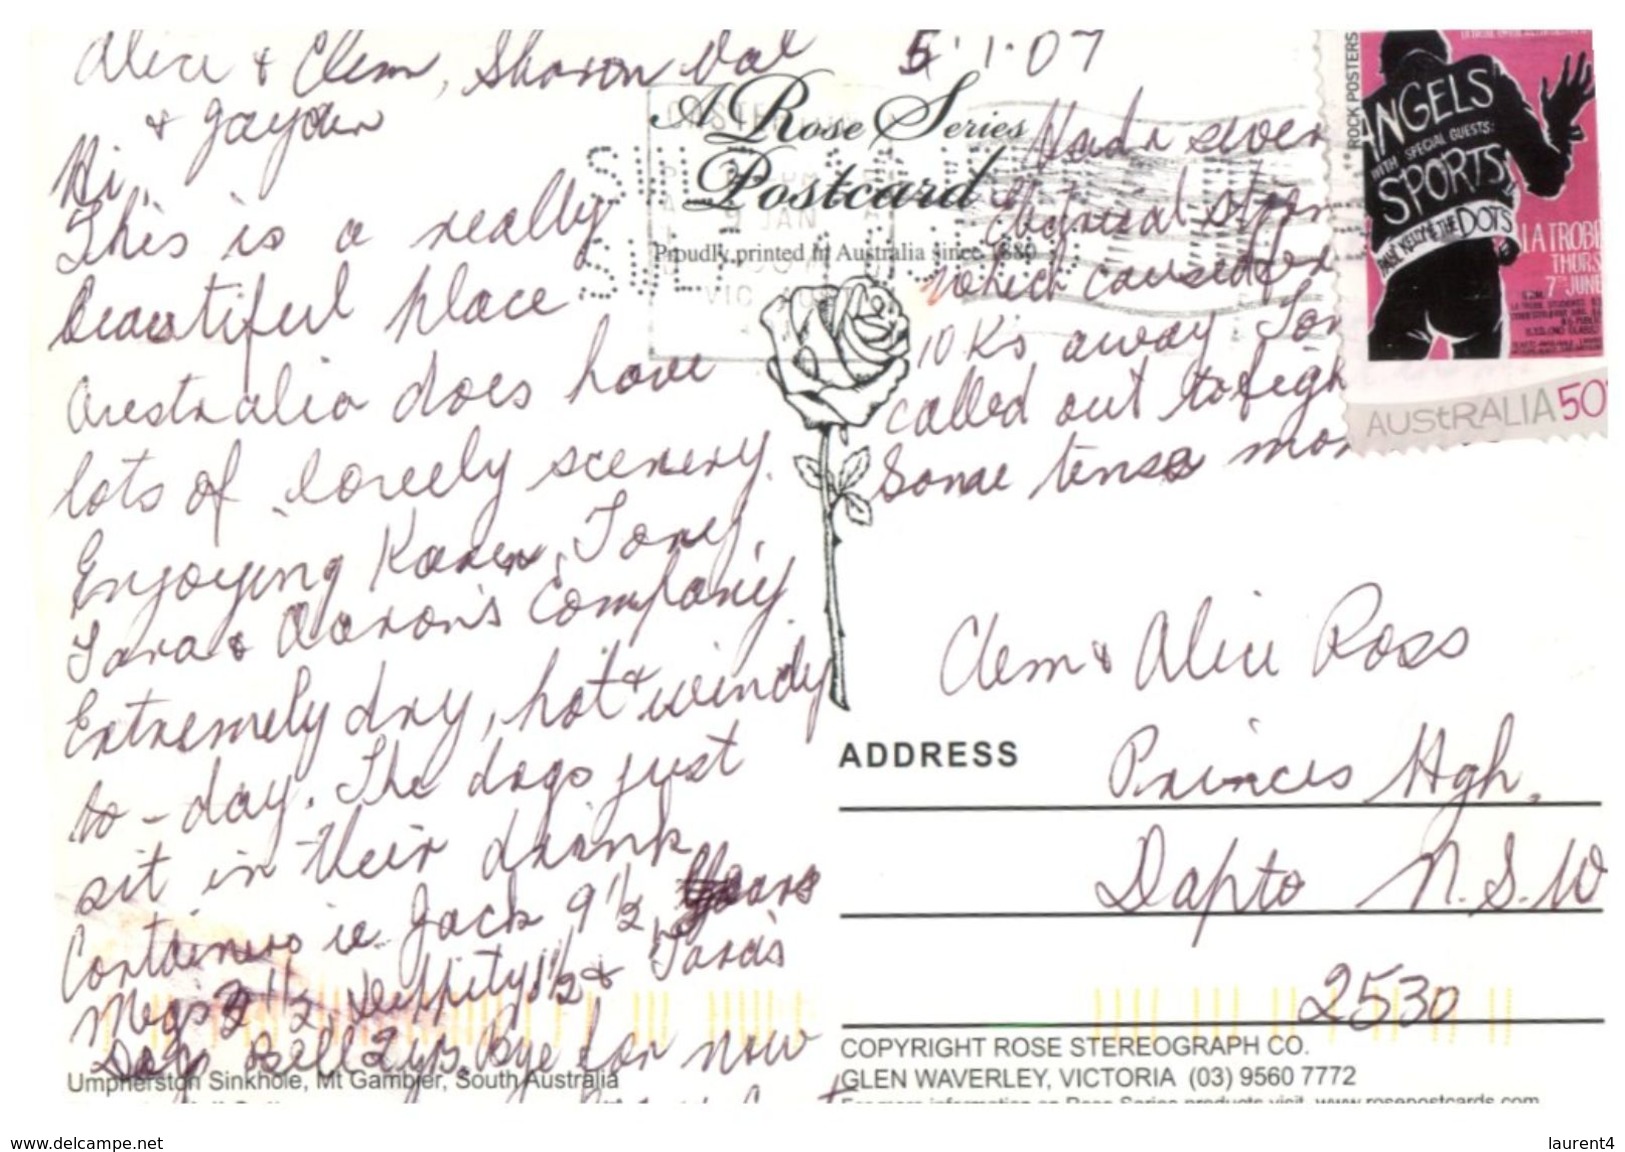 Alice & Clem, Sharon Val
& Jayden
5.1.07
Hi,
This is a really
beautiful place
Australia does have
lots of lovely scenery.
Enjoying Karen, Tony,
Tara & Aaron's Company.
Extremely dry, hot & windy
to-day. The dogs just
sit in their drink
Containers ie Jack 9 1/2 years
Megs 2 1/2, 1 1/2 & Tara's
Dog Bell 2yrs. Bye for now
Umpherston Sinkhole, Mt Gambier, South Australia
A Rose Series
Postcard
Proudly printed in Australia since 1880
JAN
VIC AUS
Had
which caused
10 K's away
called out to
Some tense
ROCK POSTERS
ANGELS
WITH SPECIAL GUESTS:
SPORTS
DOTS
LA TROBE
THURS
7TH JUNE
AUStRALIA 50
Clem & Alice Ross
ADDRESS
Princes Hgh.
Dapto N.S.W
2530
COPYRIGHT ROSE STEREOGRAPH CO.
GLEN WAVERLEY, VICTORIA (03) 9560 7772
For more information on Rose Series products visit www.rosepostcards.com
www.delcampe.net
laurent4